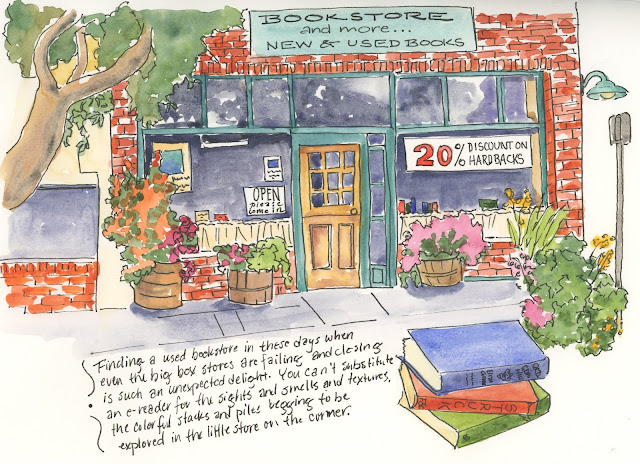 BOOKSTORE
and more...
NEW & USED BOOKS
20% DISCOUNT ON
HARDBACKS
OPEN
please
come in.
Finding a used bookstore in these days when
even the big box stores are failing and closing
is such an unexpected delight. You can't substitute
an e-reader for the sights and smells and textures,
the colorful stacks and piles begging to be
explored in the little store on the corner.